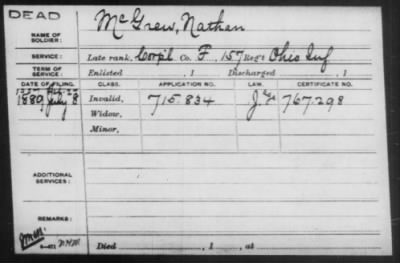 DEAD
NAME OF SOLDIER: McGrew, Nathan
SERVICE: Late rank, Corp'l Co. F, 157 Reg't Ohio Inf
TERM OF SERVICE: Enlisted , 1 Discharged , 1
DATE OF FILING. CLASS. APPLICATION NO. LAW. CERTIFICATE NO.
1889, July 8 Invalid, 715.834 767.298
Widow,
Minor,
ADDITIONAL SERVICES:
REMARKS:
Died , 1 , at